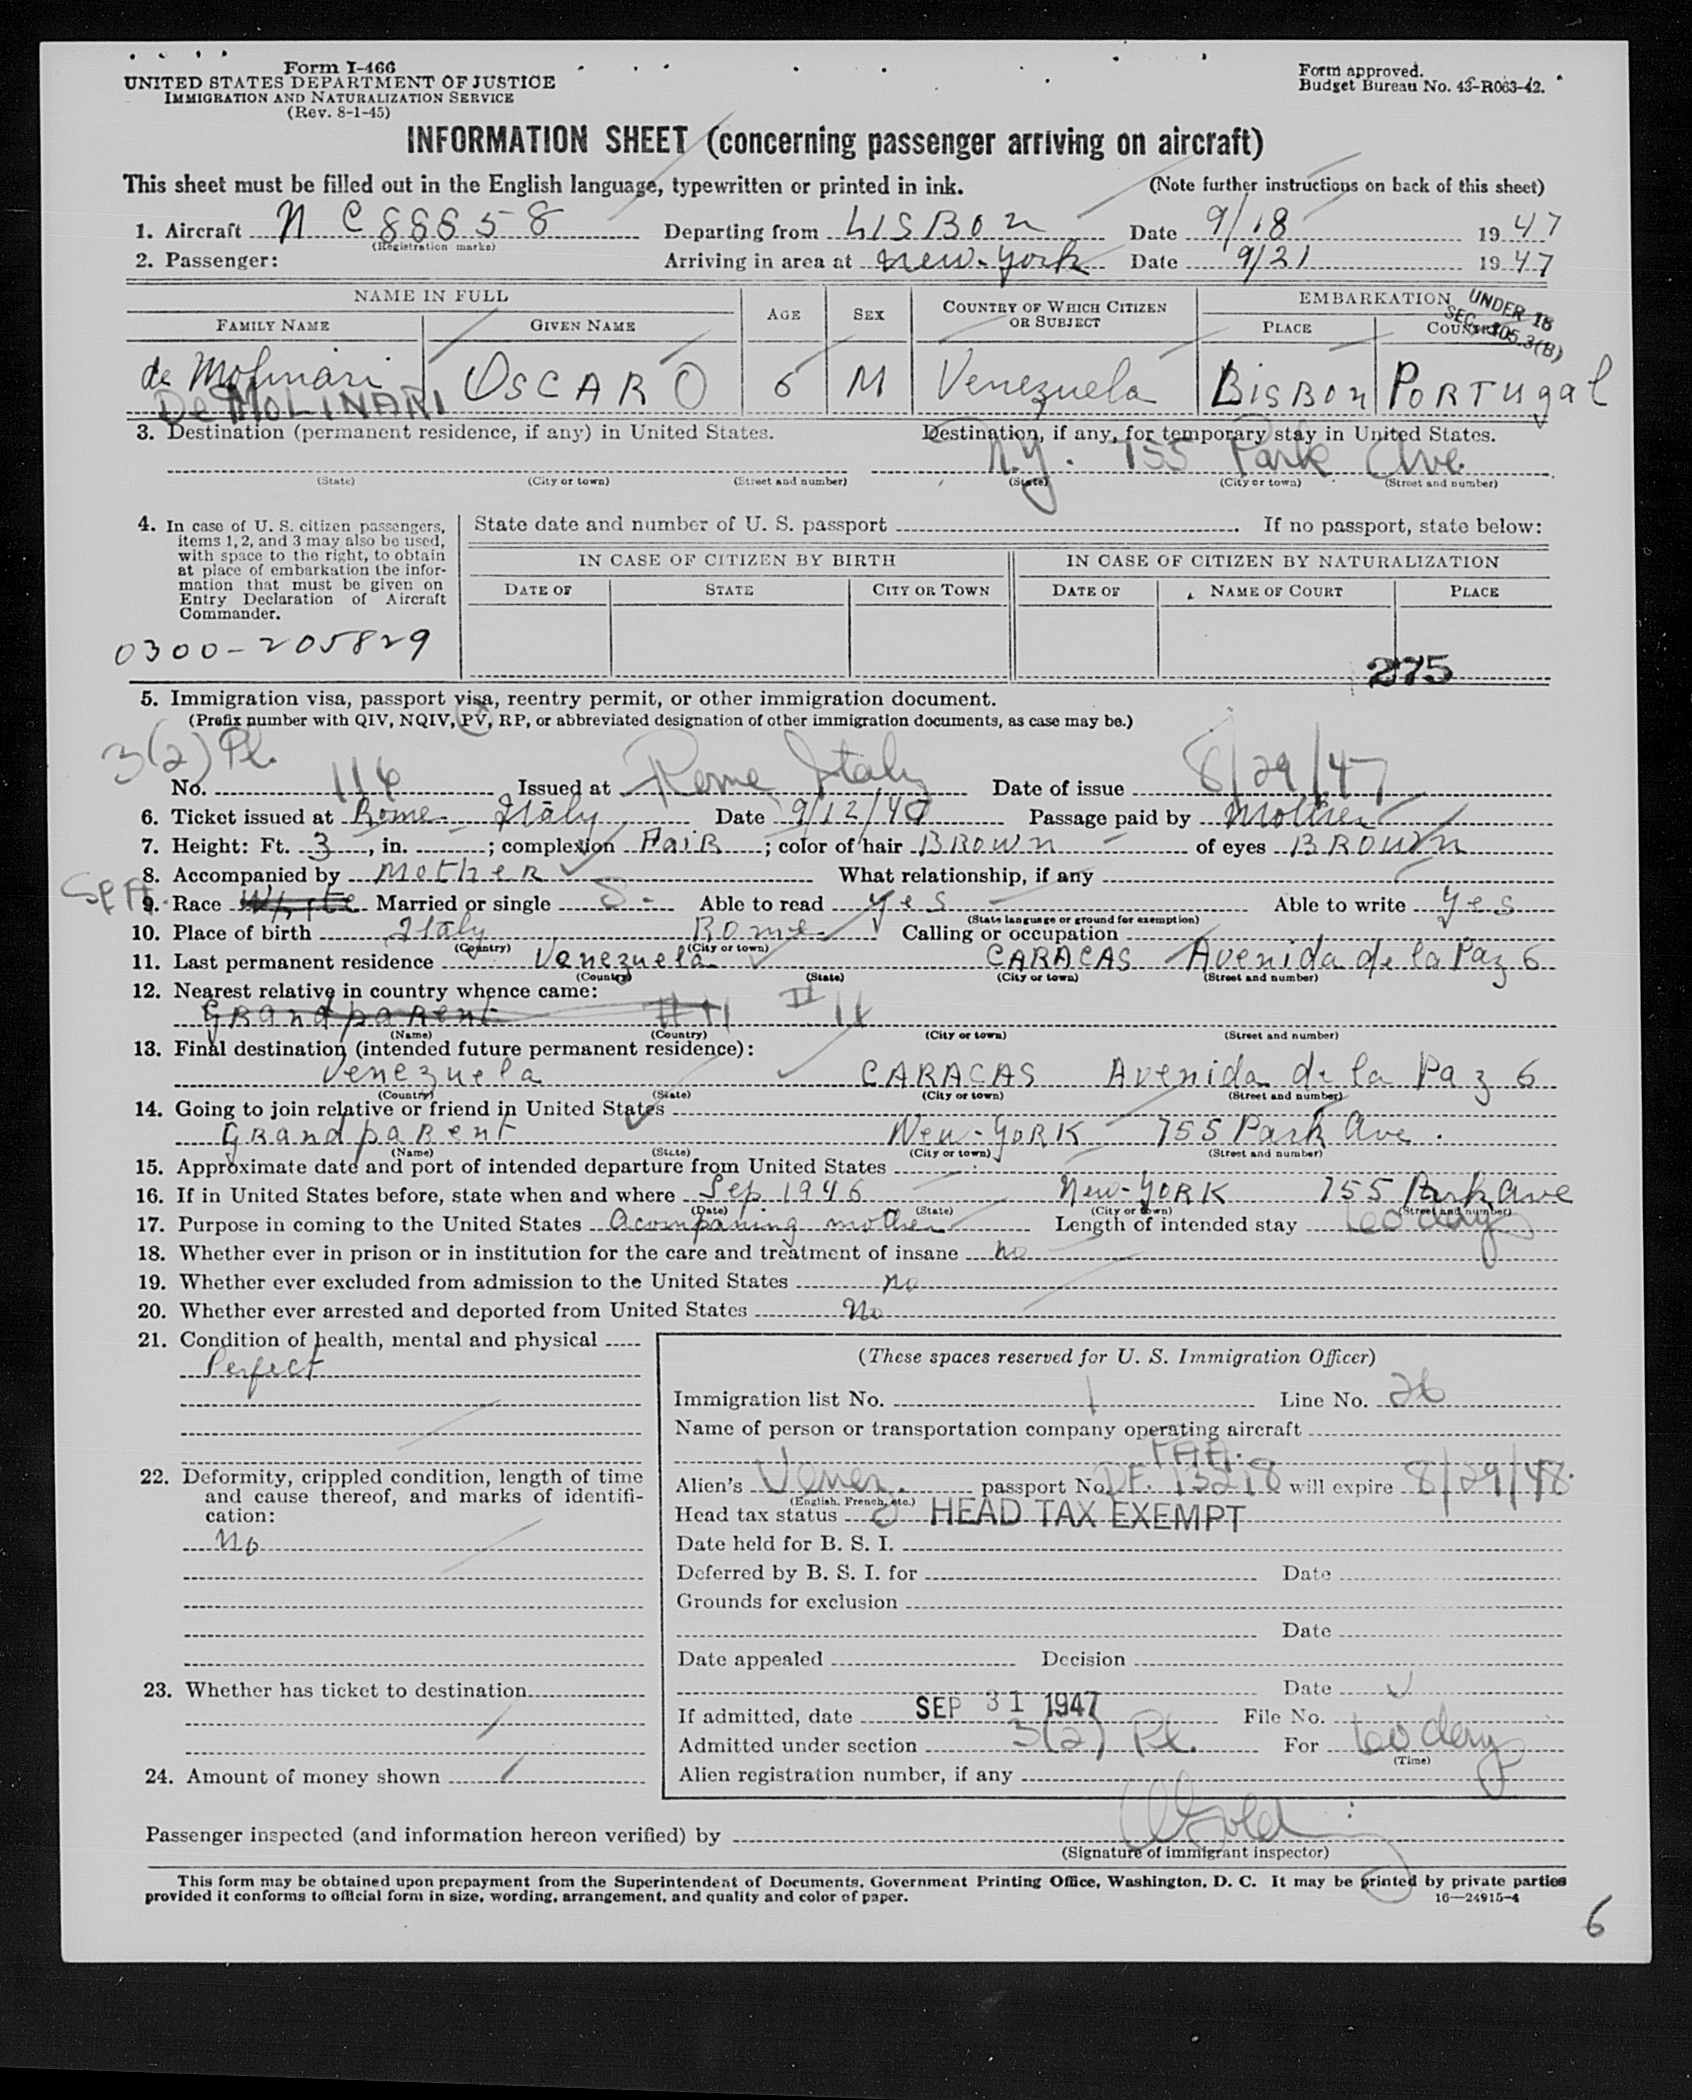 Form I-466
UNITED STATES DEPARTMENT OF JUSTICE
IMMIGRATION AND NATURALIZATION SERVICE
(Rev. 8-1-45)
Form approved.
Budget Bureau No. 43-R063-42.
INFORMATION SHEET (concerning passenger arriving on aircraft)
This sheet must be filled out in the English language, typewritten or printed in ink. (Note further instructions on back of this sheet)
1. Aircraft N C 88858 Departing from LISBON Date 9/18 1947
(Registration marks)
2. Passenger: Arriving in area at New-York Date 9/21 1947
NAME IN FULL AGE SEX COUNTRY OF WHICH CITIZEN OR SUBJECT EMBARKATION
UNDER 16
SEC. 105.3(B)
FAMILY NAME GIVEN NAME PLACE COUNTRY
de Molinari OSCAR O 6 M Venezuela LISBON PORTUgal
De MOLINARI
3. Destination (permanent residence, if any) in United States. Destination, if any, for temporary stay in United States.
N.Y. 755 Park Ave.
(State) (City or town) (Street and number) (State) (City or town) (Street and number)
4. In case of U. S. citizen passengers, items 1, 2, and 3 may also be used, with space to the right, to obtain at place of embarkation the information that must be given on Entry Declaration of Aircraft Commander.
State date and number of U. S. passport If no passport, state below:
IN CASE OF CITIZEN BY BIRTH IN CASE OF CITIZEN BY NATURALIZATION
DATE OF STATE CITY OR TOWN DATE OF NAME OF COURT PLACE
0300-205829
275
5. Immigration visa, passport visa, reentry permit, or other immigration document.
(Prefix number with QIV, NQIV, PV, RP, or abbreviated designation of other immigration documents, as case may be.)
3(2) Pl.
No. 116 Issued at Rome Italy Date of issue 8/29/47
6. Ticket issued at Rome-Italy Date 9/12/47 Passage paid by Mother
7. Height: Ft. 3, in. ; complexion FaiR ; color of hair BROWN of eyes BROWN
8. Accompanied by MotheR What relationship, if any
SPA.
9. Race White Married or single S- Able to read yes Able to write yes
(State language or ground for exemption)
10. Place of birth Italy Rome Calling or occupation
(Country) (City or town)
11. Last permanent residence Venezuela CARACAS Avenida de la Paz 6
(Country) (State) (City or town) (Street and number)
12. Nearest relative in country whence came:
GRandpaRent # 11 II 11
(Name) (Country) (City or town) (Street and number)
13. Final destination (intended future permanent residence):
Venezuela CARACAS Avenida de la Paz 6
(Country) (State) (City or town) (Street and number)
14. Going to join relative or friend in United States
GRandpaRent New-YORK 755 Park Ave.
(Name) (State) (City or town) (Street and number)
15. Approximate date and port of intended departure from United States
16. If in United States before, state when and where Sep 1946 New-YORK 755 Park Ave
(Date) (State) (City or town) (Street and number)
17. Purpose in coming to the United States Acompaning mother Length of intended stay 60 days
18. Whether ever in prison or in institution for the care and treatment of insane no
19. Whether ever excluded from admission to the United States no
20. Whether ever arrested and deported from United States No
21. Condition of health, mental and physical
Perfect
22. Deformity, crippled condition, length of time and cause thereof, and marks of identification:
No
23. Whether has ticket to destination
24. Amount of money shown
(These spaces reserved for U. S. Immigration Officer)
Immigration list No. 1 Line No. 26
Name of person or transportation company operating aircraft
Alien's Venez. passport No. DF. 13218 will expire 8/29/48.
(English, French, etc.)
Head tax status HEAD TAX EXEMPT
Date held for B. S. I.
Deferred by B. S. I. for Date
Grounds for exclusion
Date
Date appealed Decision
Date
If admitted, date SEP 31 1947 File No.
Admitted under section 3(2) Pl. For 60 days
(Time)
Alien registration number, if any
Passenger inspected (and information hereon verified) by
(Signature of immigrant inspector)
This form may be obtained upon prepayment from the Superintendent of Documents, Government Printing Office, Washington, D. C. It may be printed by private parties
provided it conforms to official form in size, wording, arrangement, and quality and color of paper. 16—24915-4
6